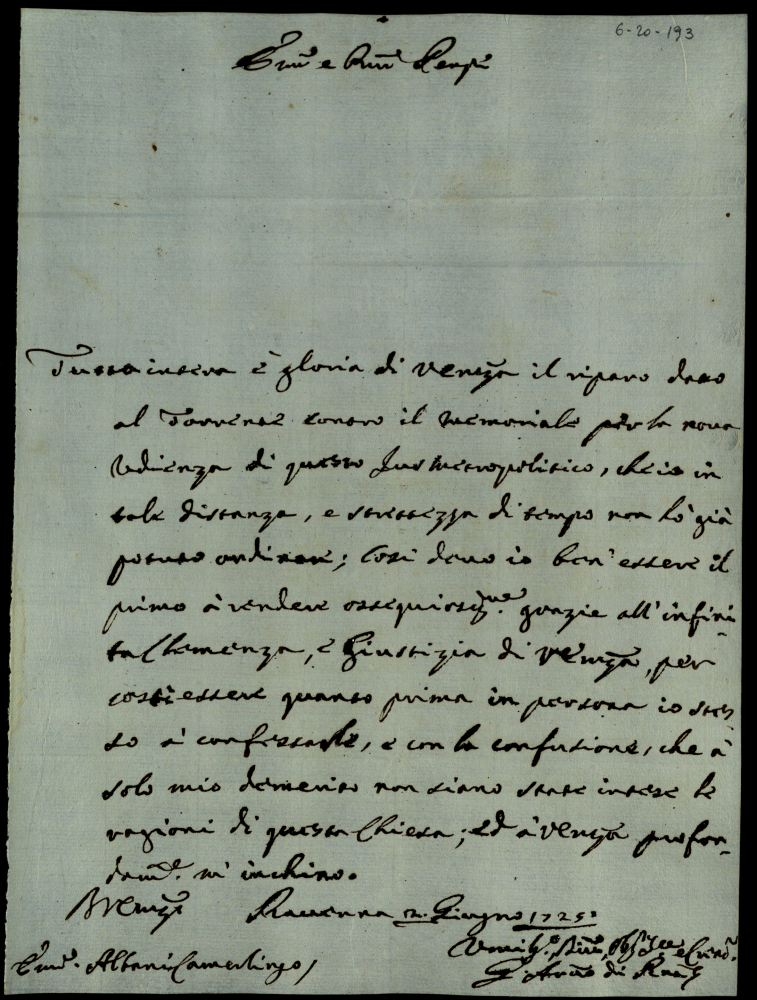 6-20-193
Em.mo e R.mo
Tutta intera è gloria di V. Em.za il riparo dato
al Torrente contro il memoriale per la nova
Udienza di questo Jus metropolitico, che io in
tale distanza, e strettezza di tempo non hò già
potuto ordinare; Così devo io ben' essere il
primo à rendere ossequiosis.me grazie all'infini-
ta Clemenza, e Giustizia di V. Em.za, per
costì essere quanto prima in persona io stes
so à confessarle, e con la confusione, che à
solo mio demerito non siano state intese le
ragioni di questa Chiesa; ed à V. Em.za profon-
dam.te m'inchino.
Di V. Em.za Ravenna 2. Giugno 1725
Em.mo Albani Camerlingo
Umil.mo
di